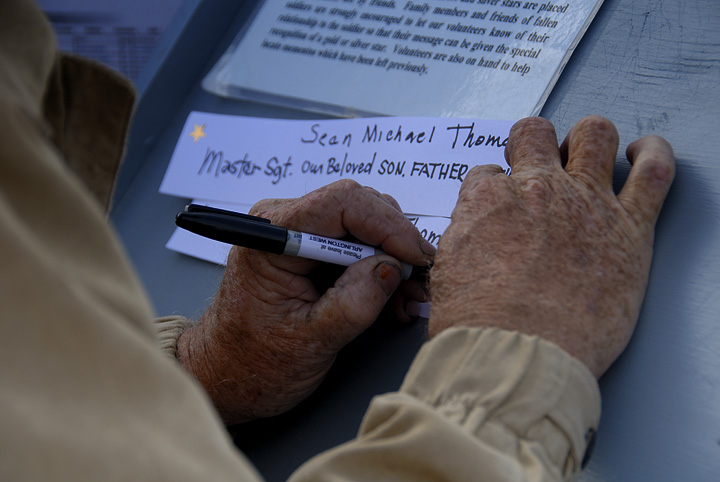 by friends. Family members and friends of fallen
soldiers are strongly encouraged to let our volunteers know of their
relationship to the soldier so that their message can be given the special
recognition of a gold or silver star. Volunteers are also on hand to help
locate mementos which have been left previously.
Sean Michael Thom
Master Sgt. Our Beloved SON, FATHER
Thom
Please leave at
ARLINGTON WEST